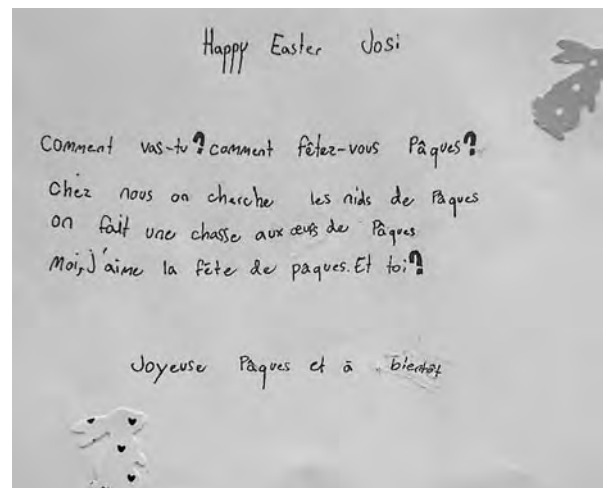 Happy Easter Josi
Comment vas-tu ? comment fêtez-vous Pâques ?
Chez nous on cherche les nids de Pâques
on fait une chasse aux œufs de Pâques
Moi, J'aime la fête de paques. Et toi ?
Joyeuse Pâques et à bientôt